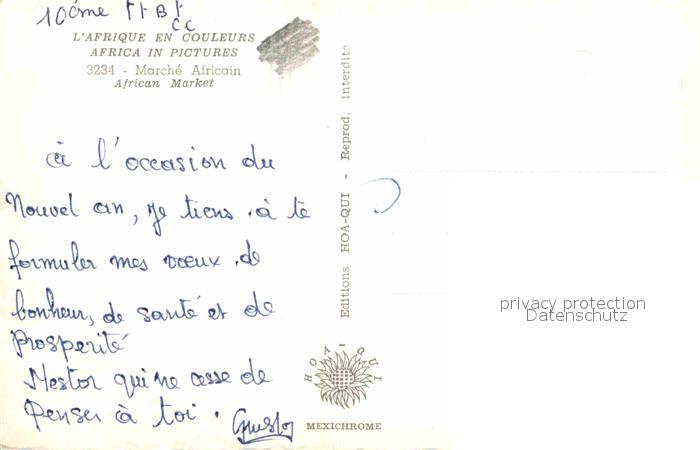 10ème
L'AFRIQUE EN COULEURS
AFRICA IN PICTURES
3234 - Marché Africain
African Market
à l'occasion du
Nouvel an, je tiens à te
formuler mes vœux de
bonheur, de santé et de
Prosperité
Nestor qui ne cesse de
Penser à toi.
Editions HOA-QUI - Reprod. interdite
HOA-QUI
MEXICHROME
privacy protection
Datenschutz